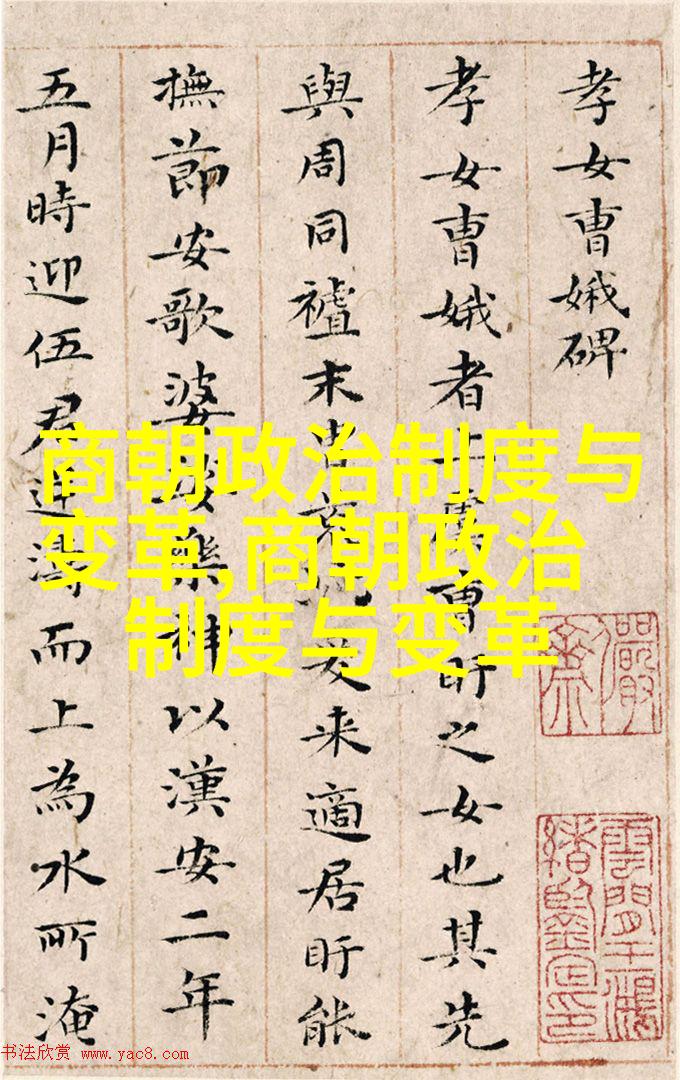 孝女曹娥碑
孝女曹娥者上虞曹盱之女也其先
與周同禮末胄荒沈爰来適居盱能
撫節安歌婆娑樂神以漢安二年
五月時迎伍君逆濤而上為水所淹
商朝政治制度与
变革,商朝政治
制度与变革
书法欣赏 www.yac8.com